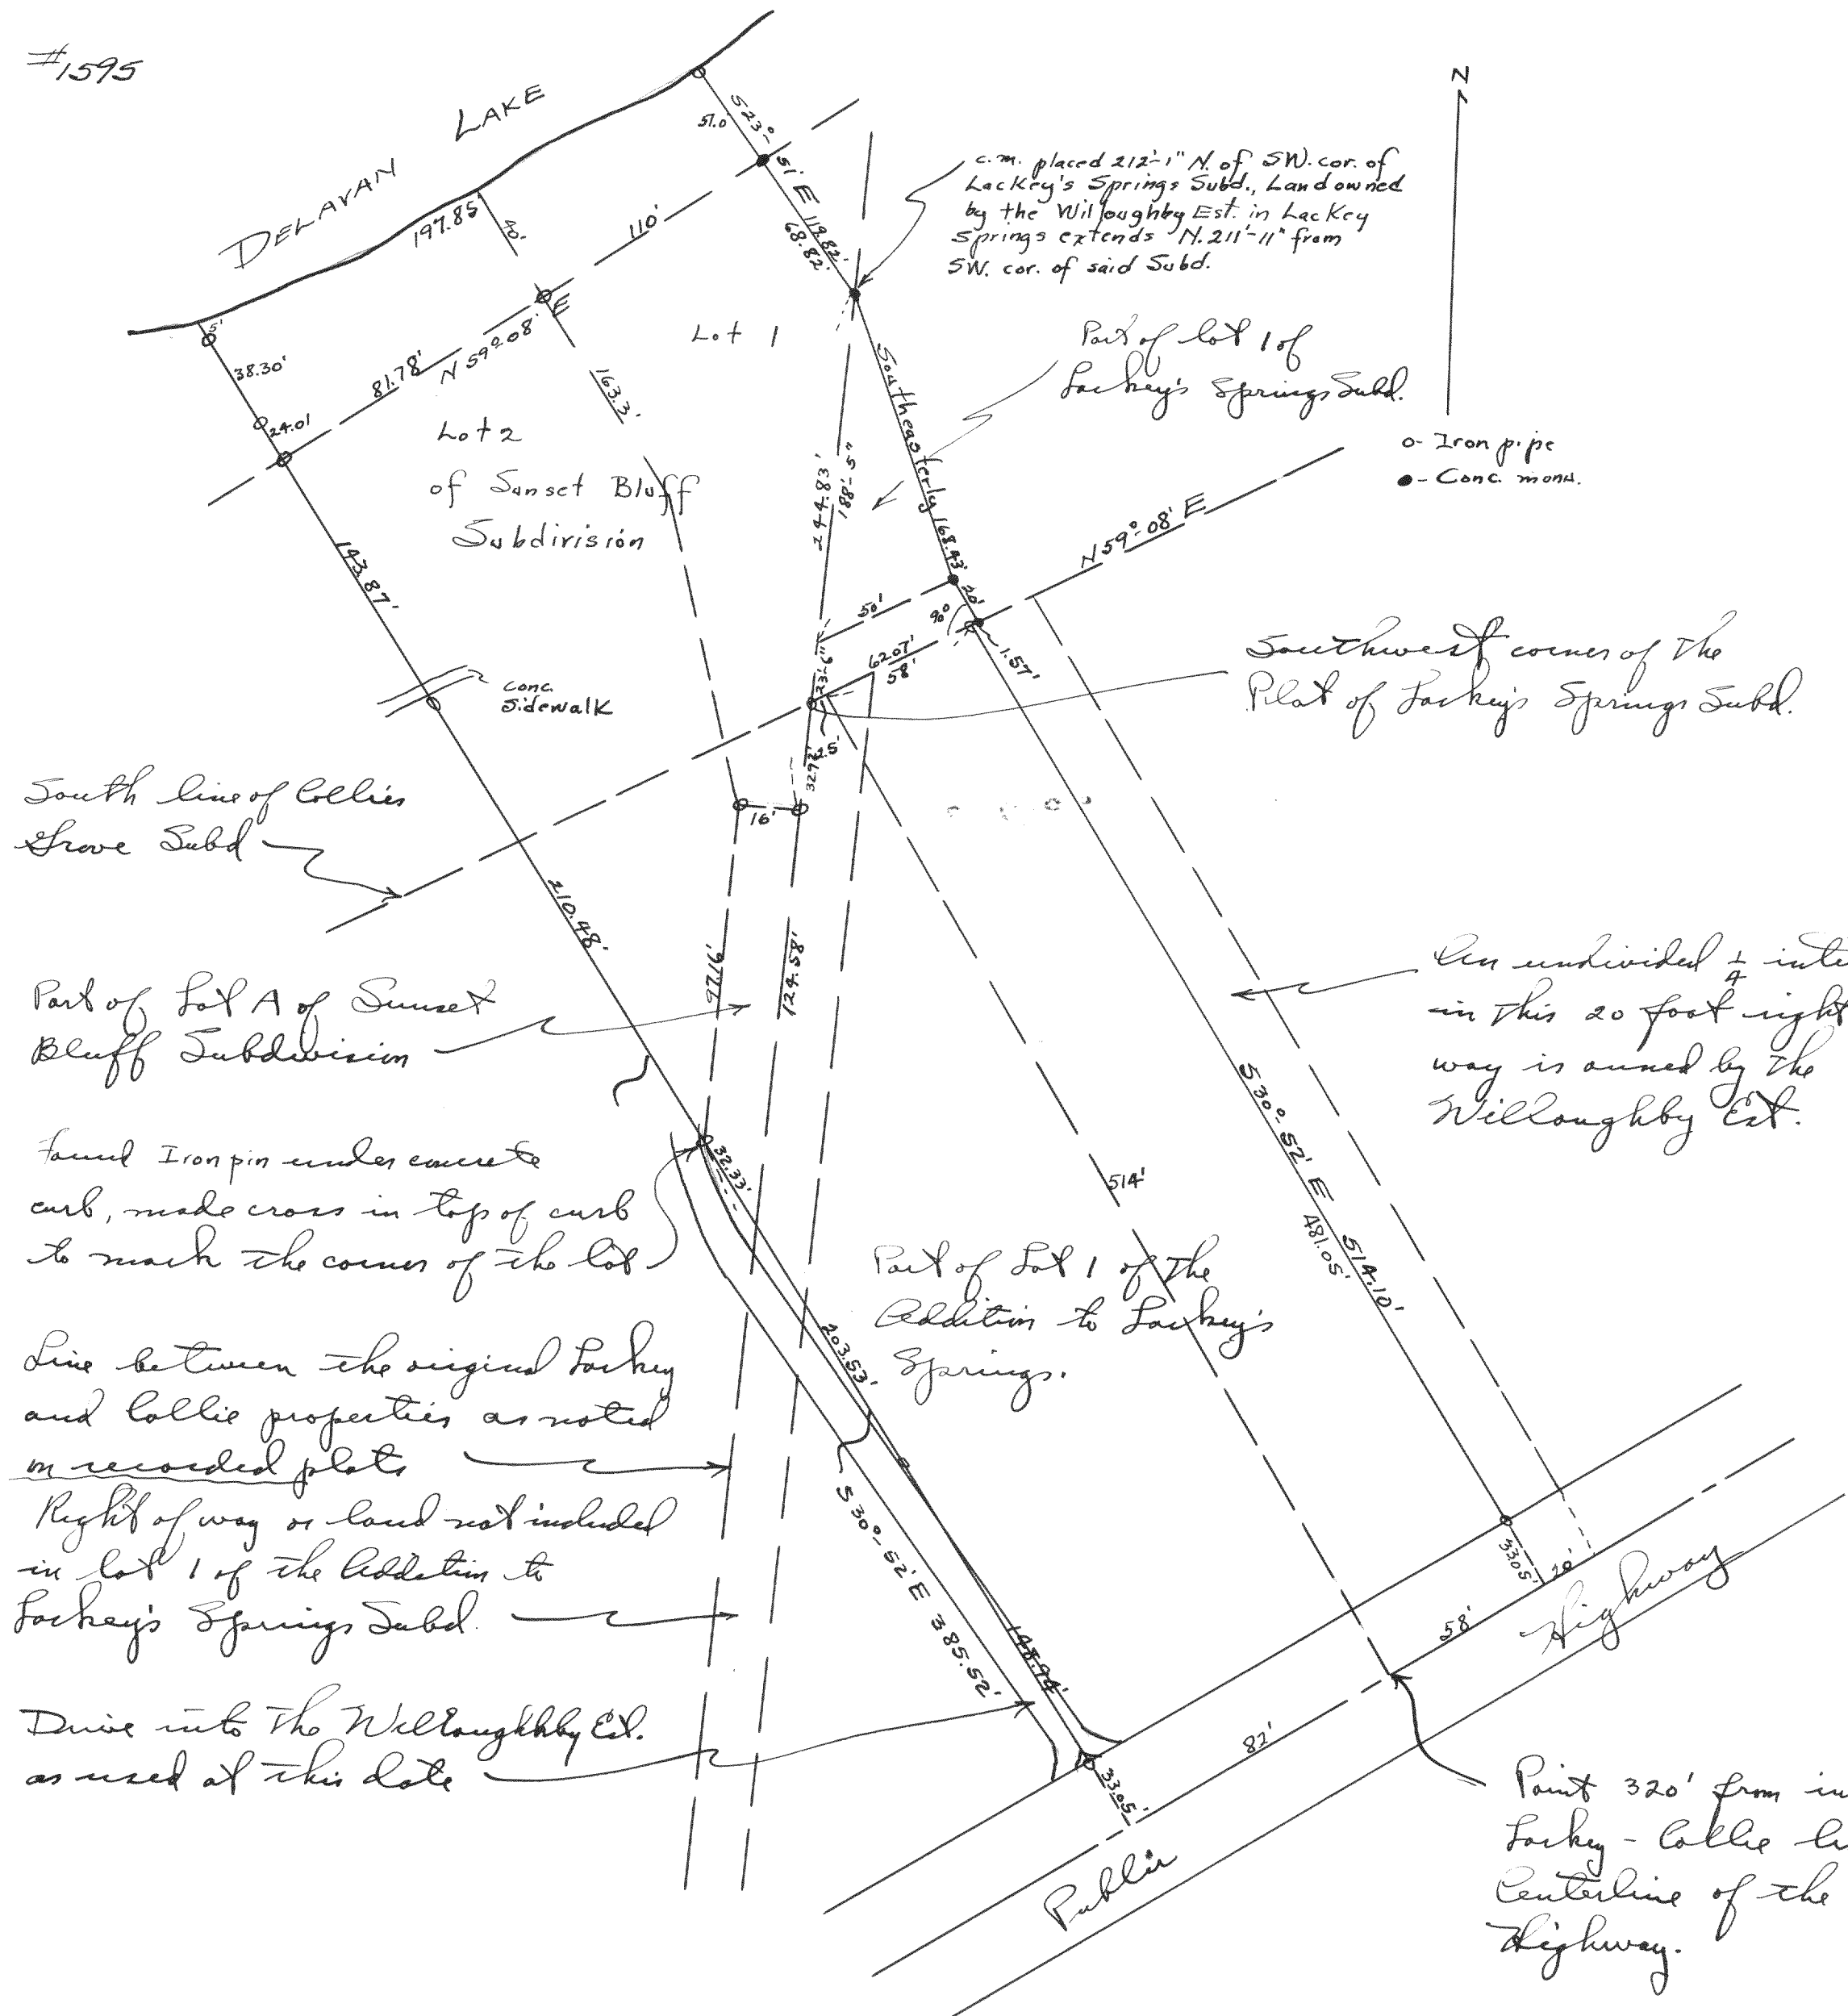 #1595
DELAVAN LAKE
N
S23°-51'E 119.82'
51.0'
68.82'
c.m. placed 212'-1" N. of SW. cor. of
Lackey's Springs Subd., Land owned
by the Willoughby Est. in Lackey
Springs extends N. 211'-11" from
SW. cor. of said Subd.
197.85'
40'
110'
5'
38.30'
24.01
81.78'
N 59°-08' E
163.3'
Lot 1
Lot 2
of Sunset Bluff
Subdivision
Part of lot 1 of
Lackey's Springs Subd.
o - Iron pipe
● - Conc. mon.
Southeasterly 168.43'
244.83'
188'-5"
143.87'
N 59°-08' E
50'
20'
90°
62.07'
58'
1.57'
23'-6"
conc.
sidewalk
Southwest corner of the
Plat of Lackey's Springs Subd.
32.92'
25'
16'
South line of Collies
Grove Subd
210.48'
97.16'
124.58'
Part of Lot A of Sunset
Bluff Subdivision
An undivided 1/4
in this 20 foot right
way is owned by the
Willoughby Est.
Found Iron pin under concrete
curb, made cross in top of curb
to mark the corner of the lot
32.33'
514'
S30°-52' E 514.10'
481.05'
Part of Lot 1 of the
Addition to Lackey's
Springs.
203.53'
Line between the original Lackey
and Collie properties as noted
on recorded plats
Right of way or land not included
in lot 1 of the Addition to
Lackey's Springs Subd.
S30°-52' E 385.52'
148.94'
33.05'
20'
58'
82'
33.05'
Public Highway
Drive into the Willoughby Est.
as used at this date
Point 320' from
Lackey - Collie
Centerline of the
Highway.